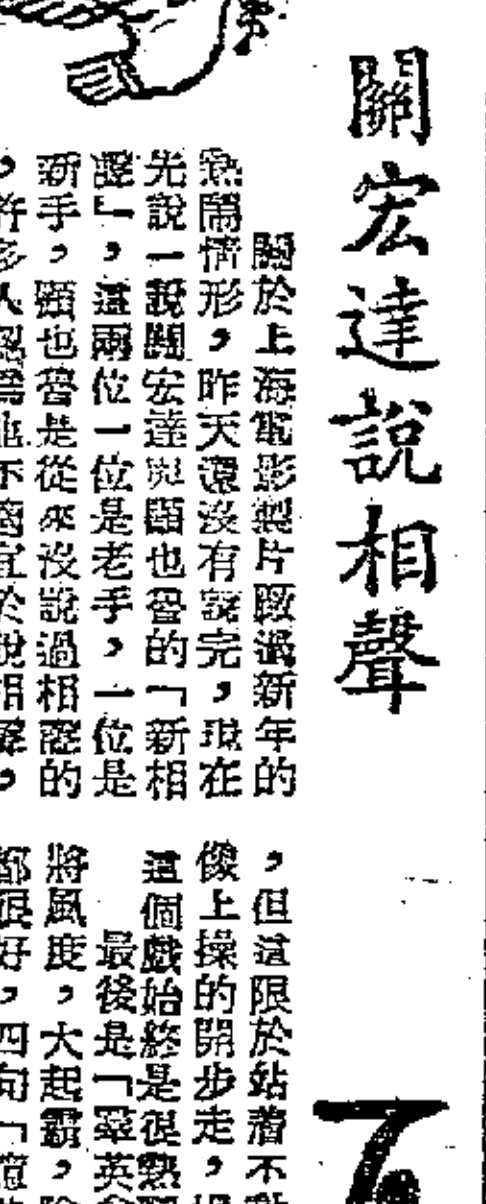 關宏達說相聲
關於上海電影製片廠過新年的
熱鬧情形，昨天還沒有說完，現在
光說一說關宏達與顧也魯的「新相
聲」，這兩位一位是老手，一位是
新手，顧也魯是從來沒說過相聲的
，許多人認爲他不適宜於說相聲，
，但這限於站着不
像上操的開步走，
這個戲始終是很熱
最後是「羣英
將風度，大起霸，
都很好，四句「